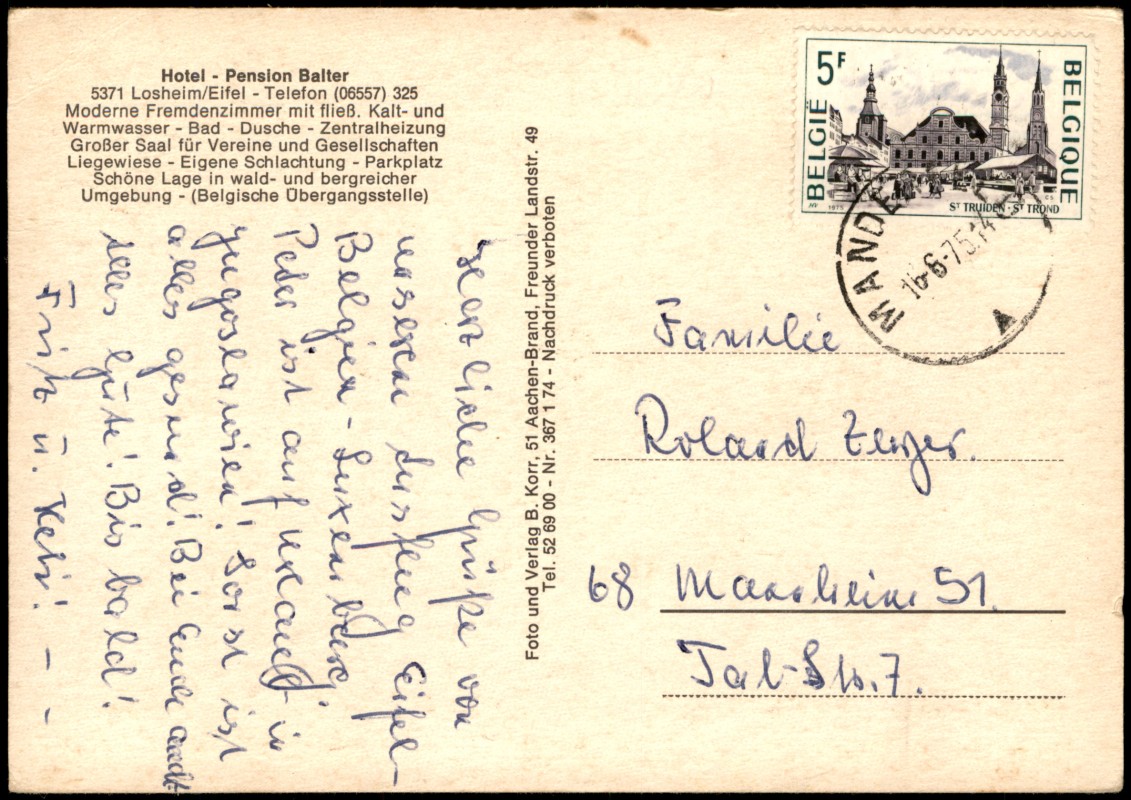 Hotel - Pension Balter
5371 Losheim/Eifel - Telefon (06557) 325
Moderne Fremdenzimmer mit fließ. Kalt- und
Warmwasser - Bad - Dusche - Zentralheizung
Großer Saal für Vereine und Gesellschaften
Liegewiese - Eigene Schlachtung - Parkplatz
Schöne Lage in wald- und bergreicher
Umgebung - (Belgische Übergangsstelle)
Herzliche Grüße von
unserem Ausflug Eifel-
Belgien - Luxemburg.
Peter ist auf Urlaub in
Jugoslawien! Sonst ist
alles gesund! Bei Euch auch?
Alles Gute! Bis bald!
Fritz u. Keti! - -
Foto und Verlag B. Korr, 51 Aachen-Brand, Freunder Landstr. 49
Tel. 52 69 00 - Nr. 367 1 74 - Nachdruck verboten
5F
BELGIË
BELGIQUE
ST TRUIDEN - ST TROND
1975
MANDE
16-6-75.14
A
Familie
Roland
68 Mannheim 51.
Tal-Str. 7.